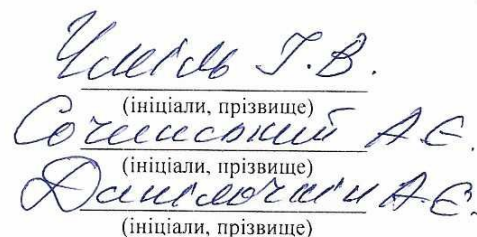 Чміль Г.В.
(ініціали, прізвище)
Сочинський А.Є.
(ініціали, прізвище)
Данілочкін А.Є.
(ініціали, прізвище)